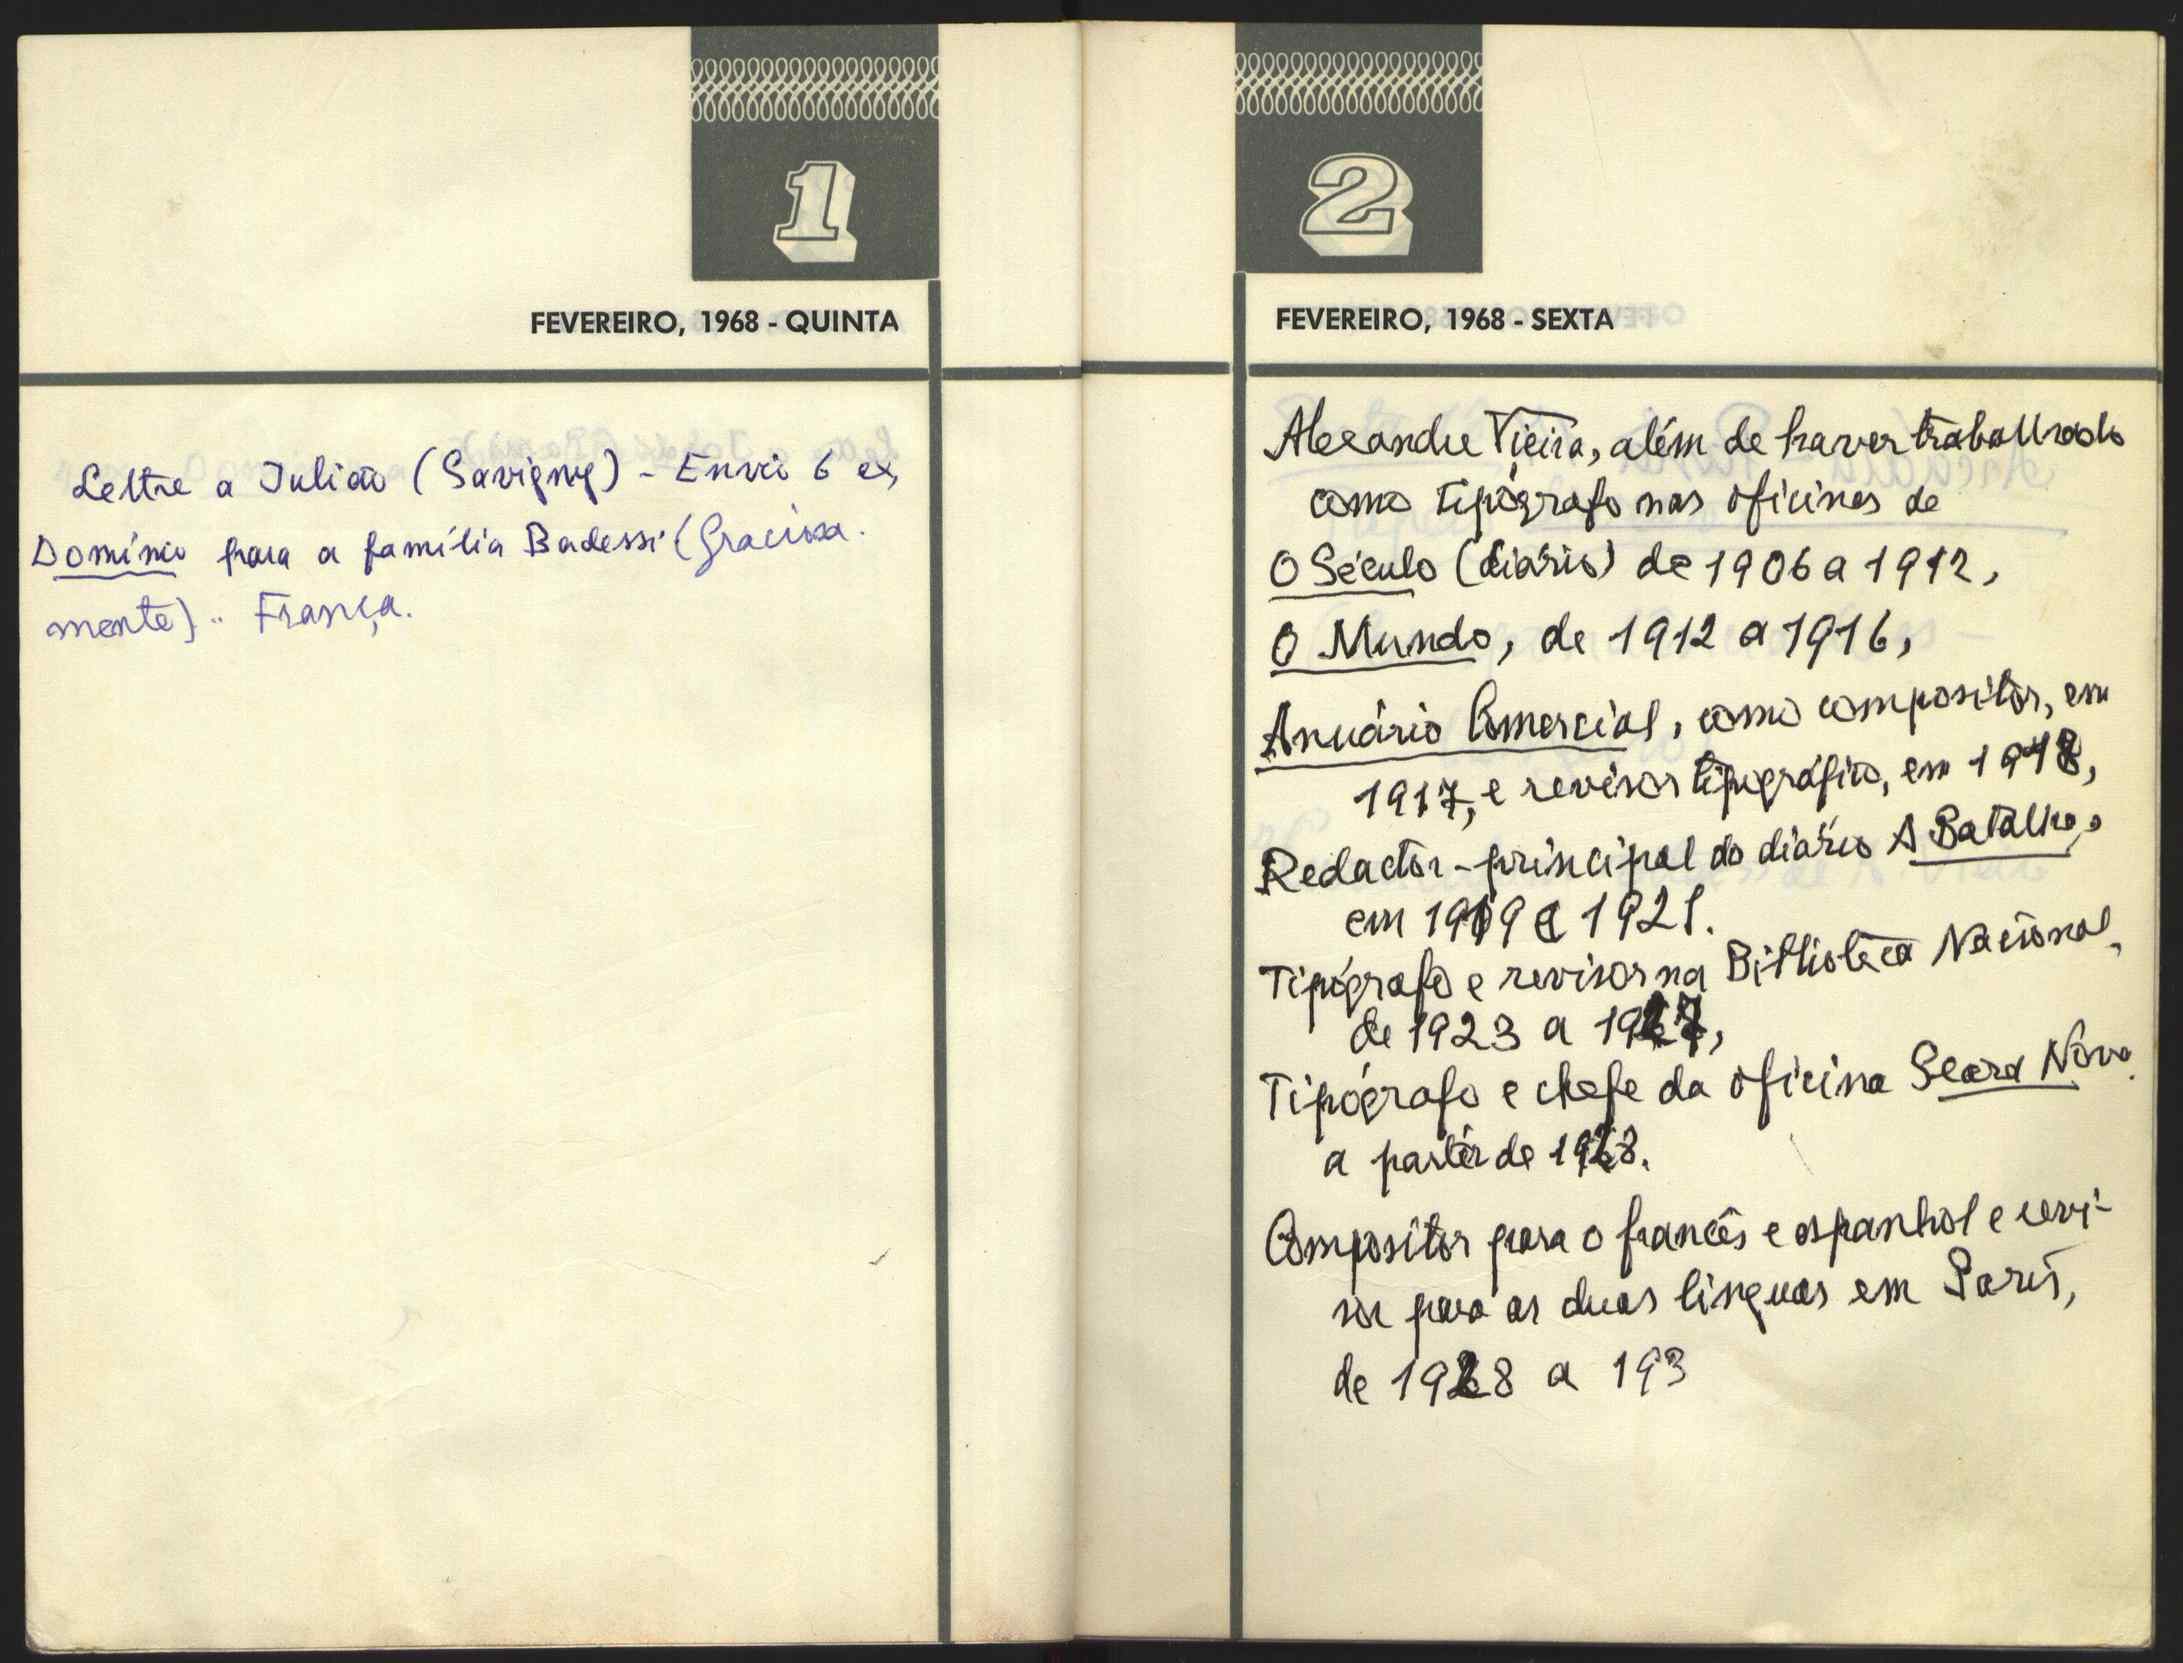 1
FEVEREIRO, 1968 - QUINTA
Lettre a Julião (Savigny) - Envio 6 ex,
Domínio para a família Badessi (Graciosa.
mente) .. França.
2
FEVEREIRO, 1968 - SEXTA
Alexandre Vieira, além de haver trabalhado
como tipógrafo nas oficinas de
O Século (diário) de 1906 a 1912,
O Mundo, de 1912 a 1916,
Anuário Comercial, como compositor, em
1917, e revisor tipográfico, em 1918,
Redactor-principal do diário A Batalha,
em 1919 a 1921.
Tipógrafo e revisor na Biblioteca Nacional,
de 1923 a 1927,
Tipógrafo e chefe da oficina Seara Nova
a partir de 1928.
Compositor para o francês e espanhol e revi-
sor para as duas línguas em Paris,
de 1928 a 193